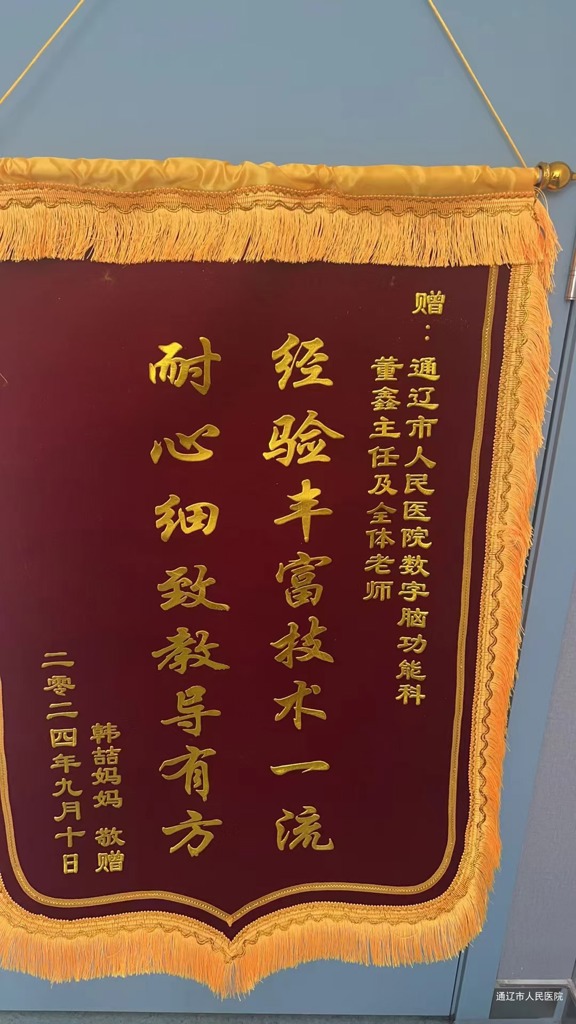 赠：
通辽市人民医院数字脑功能科
董鑫主任及全体老师
经验丰富技术一流
耐心细致教导有方
韩喆妈妈 敬赠
二零二四年九月十日
通辽市人民医院